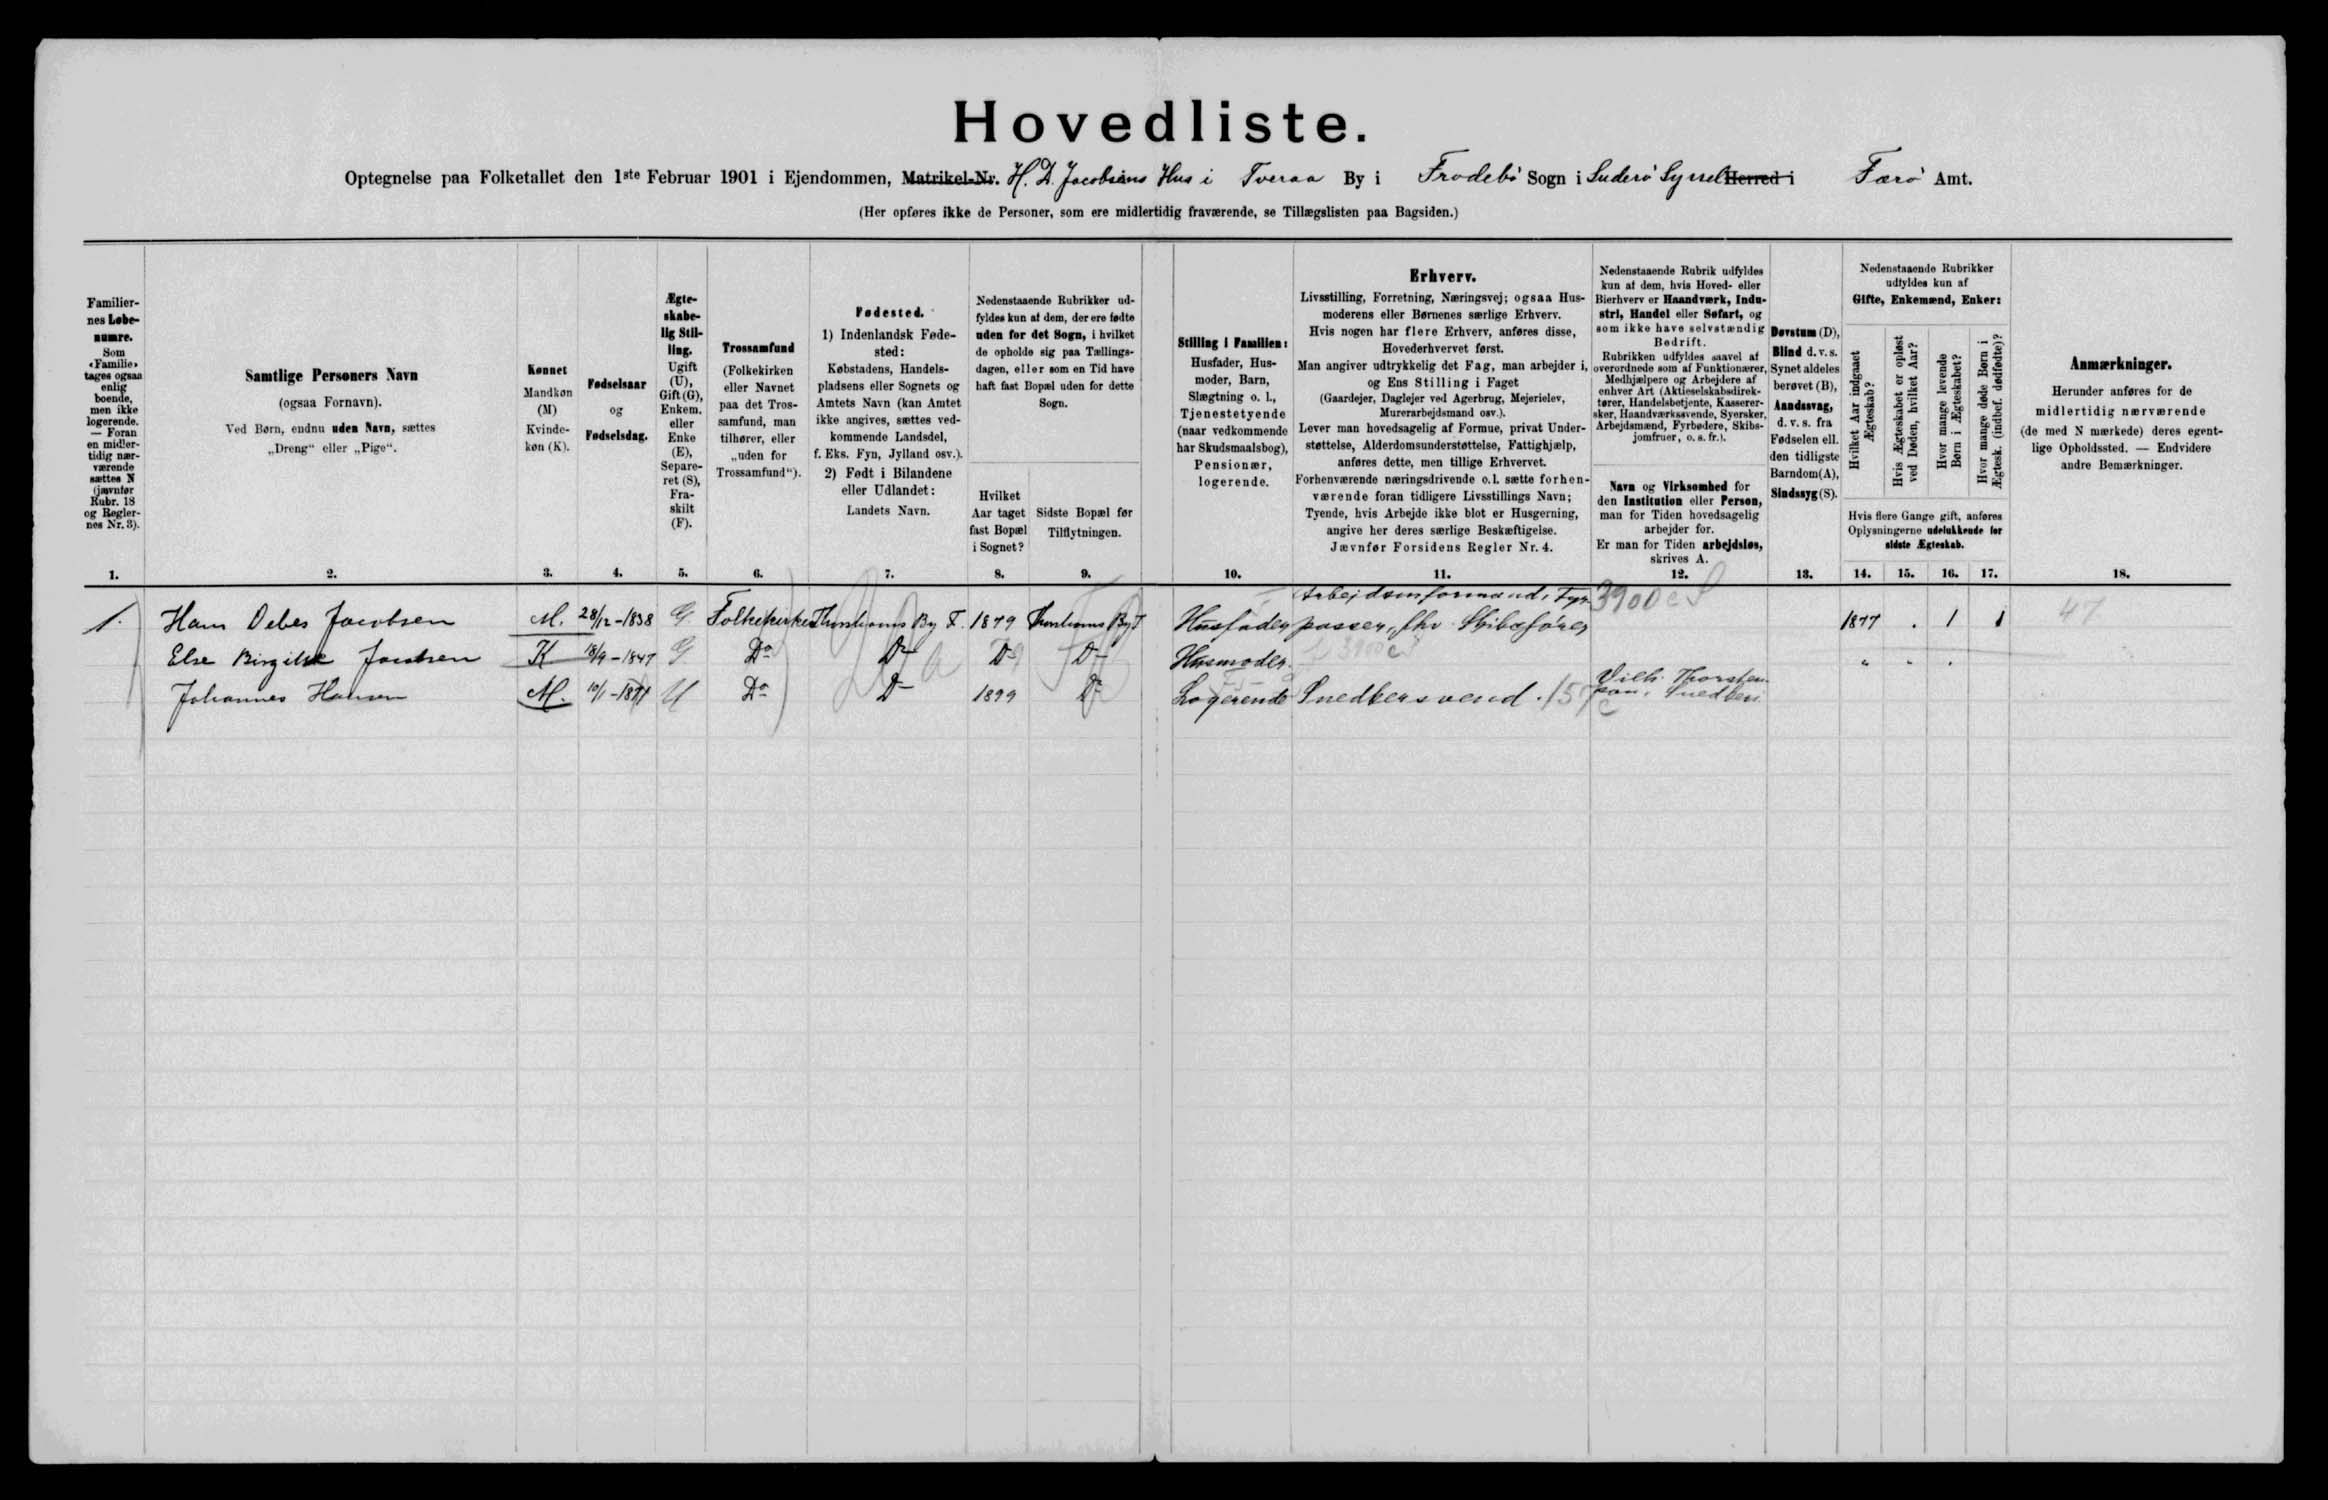 Hovedliste.
Optegnelse paa Folketallet den 1ste Februar 1901 i Ejendommen, Matrikel-Nr. H. D. Jacobsens Hus i Tveraa By i Frodebø Sogn i Suderø Syssel Herred i Færø Amt.
(Her opføres ikke de Personer, som ere midlertidig fraværende, se Tillægslisten paa Bagsiden.)
Familier-
nes Løbe-
numre.
Som
«Familie»
tages ogsaa
enlig
boende,
men ikke
logerende.
— Foran
en midler-
tidig nær-
værende
sættes N
(jævnfør
Rubr. 18
og Regler-
nes Nr. 3).
1.
Samtlige Personers Navn
(ogsaa Fornavn).
Ved Børn, endnu uden Navn, sættes
„Dreng“ eller „Pige“.
2.
Kønnet
Mandkøn
(M)
Kvinde-
køn (K).
3.
Fødselsaar
og
Fødselsdag.
4.
Ægte-
skabe-
lig Stil-
ling.
Ugift
(U),
Gift (G),
Enkem.
eller
Enke
(E),
Separe-
ret (S),
Fra-
skilt
(F).
5.
Trossamfund
(Folkekirken
eller Navnet
paa det Tros-
samfund, man
tilhører, eller
„uden for
Trossamfund“).
6.
Fødested.
1) Indenlandsk Føde-
sted:
Købstadens, Handels-
pladsens eller Sognets og
Amtets Navn (kan Amtet
ikke angives, sættes ved-
kommende Landsdel,
f. Eks. Fyn, Jylland osv.).
2) Født i Bilandene
eller Udlandet:
Landets Navn.
7.
Nedenstaaende Rubrikker ud-
fyldes kun af dem, der ere fødte
uden for det Sogn, i hvilket
de opholde sig paa Tællings-
dagen, eller som en Tid have
haft fast Bopæl uden for dette
Sogn.
Hvilket
Aar taget
fast Bopæl
i Sognet?
8.
Sidste Bopæl før
Tilflytningen.
9.
Stilling i Familien:
Husfader, Hus-
moder, Barn,
Slægtning o. l.,
Tjenestetyende
(naar vedkommende
har Skudsmaalsbog),
Pensionær,
logerende.
10.
Erhverv.
Livsstilling, Forretning, Næringsvej; ogsaa Hus-
moderens eller Børnenes særlige Erhverv.
Hvis nogen har flere Erhverv, anføres disse,
Hovederhvervet først.
Man angiver udtrykkelig det Fag, man arbejder i,
og Ens Stilling i Faget
(Gaardejer, Daglejer ved Agerbrug, Mejerielev,
Murerarbejdsmand osv.).
Lever man hovedsagelig af Formue, privat Under-
støttelse, Alderdomsunderstøttelse, Fattighjælp,
anføres dette, men tillige Erhvervet.
Forhenværende næringsdrivende o. l. sætte forhen-
værende foran tidligere Livsstillings Navn;
Tyende, hvis Arbejde ikke blot er Husgerning,
angive her deres særlige Beskæftigelse.
Jævnfør Forsidens Regler Nr. 4.
11.
Nedenstaaende Rubrik udfyldes
kun af dem, hvis Hoved- eller
Bierhverv er Haandværk, Indu-
stri, Handel eller Søfart, og
som ikke have selvstændig
Bedrift.
Rubrikken udfyldes saavel af
overordnede som af Funktionærer,
Medhjælpere og Arbejdere af
enhver Art (Aktieselskabsdirek-
tører, Handelsbetjente, Kasserer-
sker, Haandværkssvende, Syersker,
Arbejdsmænd, Fyrbødere, Skibs-
jomfruer, o. s. fr.).
Navn og Virksomhed for
den Institution eller Person,
man for Tiden hovedsagelig
arbejder for.
Er man for Tiden arbejdsløs,
skrives A.
12.
Døvstum (D),
Blind d. v. s.
Synet aldeles
berøvet (B),
Aandssvag,
d. v. s. fra
Fødselen ell.
den tidligste
Barndom (A),
Sindssyg (S).
13.
Nedenstaaende Rubrikker
udfyldes kun af
Gifte, Enkemænd, Enker:
Hvilket Aar indgaaet
Ægteskab?
Hvis Ægteskabet er opløst
ved Døden, hvilket Aar?
Hvor mange levende
Børn i Ægteskabet?
Hvor mange døde Børn i
Ægtesk. (indbef. dødfødte)?
Hvis flere Gange gift, anføres
Oplysningerne udelukkende for
sidste Ægteskab.
14. 15. 16. 17.
Anmærkninger.
Herunder anføres for de
midlertidig nærværende
(de med N mærkede) deres egent-
lige Opholdssted. — Endvidere
andre Bemærkninger.
18.
Arbejdsformand, Fyr- 3900 c S
1. Hans Debes Jacobsen M. 28/12-1838 G. Folkekirken Thorshavns By F. 1879 Thorshavns By F Husfader passer, fhv. Skibsfører 1877 . 1 1 47
Else Birgitte Jacobsen K 18/9-1847 G Do Do Do Do Husmoder. " " .
Johannes Hansen M. 10/1-1871 U Do Do 1899 Do Logerende Snedkersvend. 157 c Vilh. Thorsten-
sen, Snedker